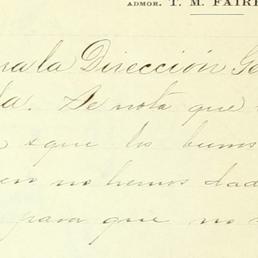 ADMOR. T. M. FAIR
na la Dirección Ge
da. Se nota que
que los buns
no hemos dad
para que no